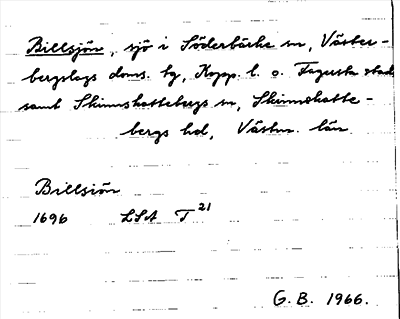 Billsjön, sjö i Söderbärke sn, Väster-
bergslags doms. hg, Kopp. l. o. Fagersta stad
samt Skinnskattebergs sn, Skinnskatte-
bergs hd, Västm. län.
Billsiön
1696 LSA T 21
G. B. 1966.